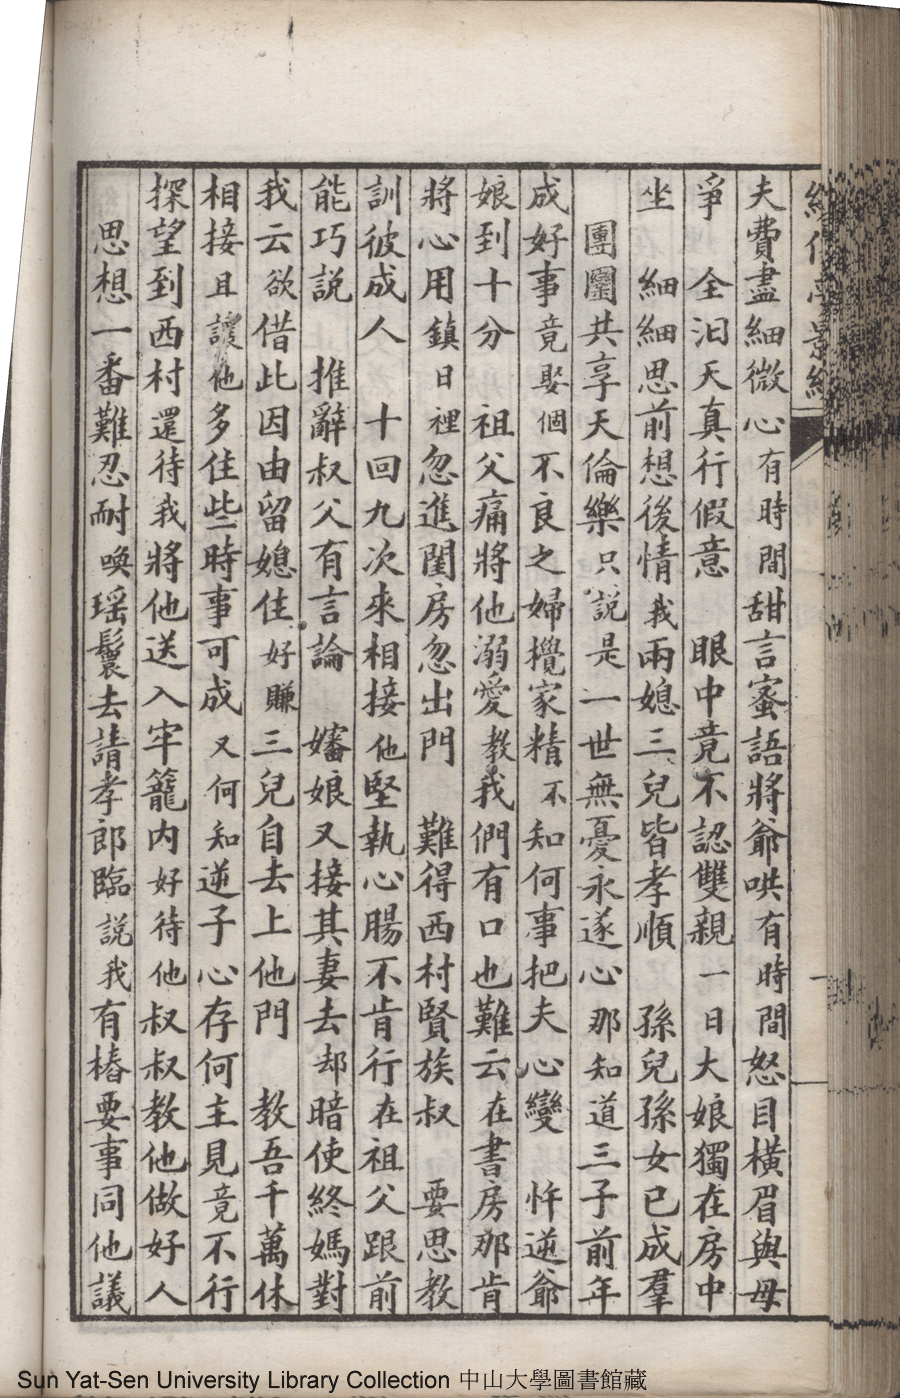 夫費盡細微心有時間甜言蜜語將爺哄有時間怒目橫眉與母
爭　全汨天真行假意　眼中竟不認雙親一日大娘獨在房中
坐　細細思前想後情我兩媳三兒皆孝順　孫兒孫女已成羣
團圞共享天倫樂只說是一世無憂永遂心那知道三子前年
成好事竟娶個不良之婦攪家精不知何事把夫心變　忤逆爺
娘到十分　祖父痛將他溺愛教我們有口也難云在書房那肯
將心用鎮日裡忽進閨房忽出門　難得西村賢族叔　要思教
訓彼成人　十回九次來相接他堅執心腸不肯行在祖父跟前
能巧説　推辭叔父有言論　嬸娘又接其妻去却暗使終媽對
我云欲借此因由留媳住好賺三兒自去上他門　教吾千萬休
相接且讓他多住些時事可成又何知逆子心存何主見竟不行
探望到西村還待我將他送入牢籠內好待他叔叔教他做好人
思想一番難忍耐喚瑶鬟去請孝郎臨説我有樁要事同他議
Sun Yat-Sen University Library Collection 中山大學圖書館藏